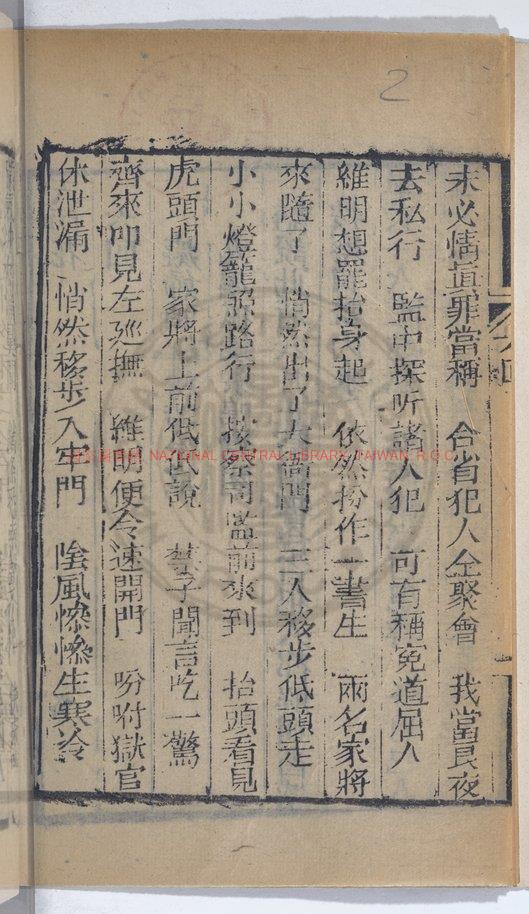 未必情真罪當稱　合省犯人全聚會　我當良夜
去私行　監中探听諸人犯　可有稱冤道屈人
維明想罷抬身起　依然扮作一書生　兩名家將
來隨了　悄然出了大衙門　三人移步低頭走
小小燈籠照路行　按察司監前來到　抬頭看見
虎頭門　家將上前低低說　禁子聞言吃一驚
齊來叩見左廵撫　維明便令速開門　吩咐獄官
休泄漏　悄然移步入牢門　陰風慘慘生寒冷
2
NATIONAL CENTRAL LIBRARY, TAIWAN, R.O.C.